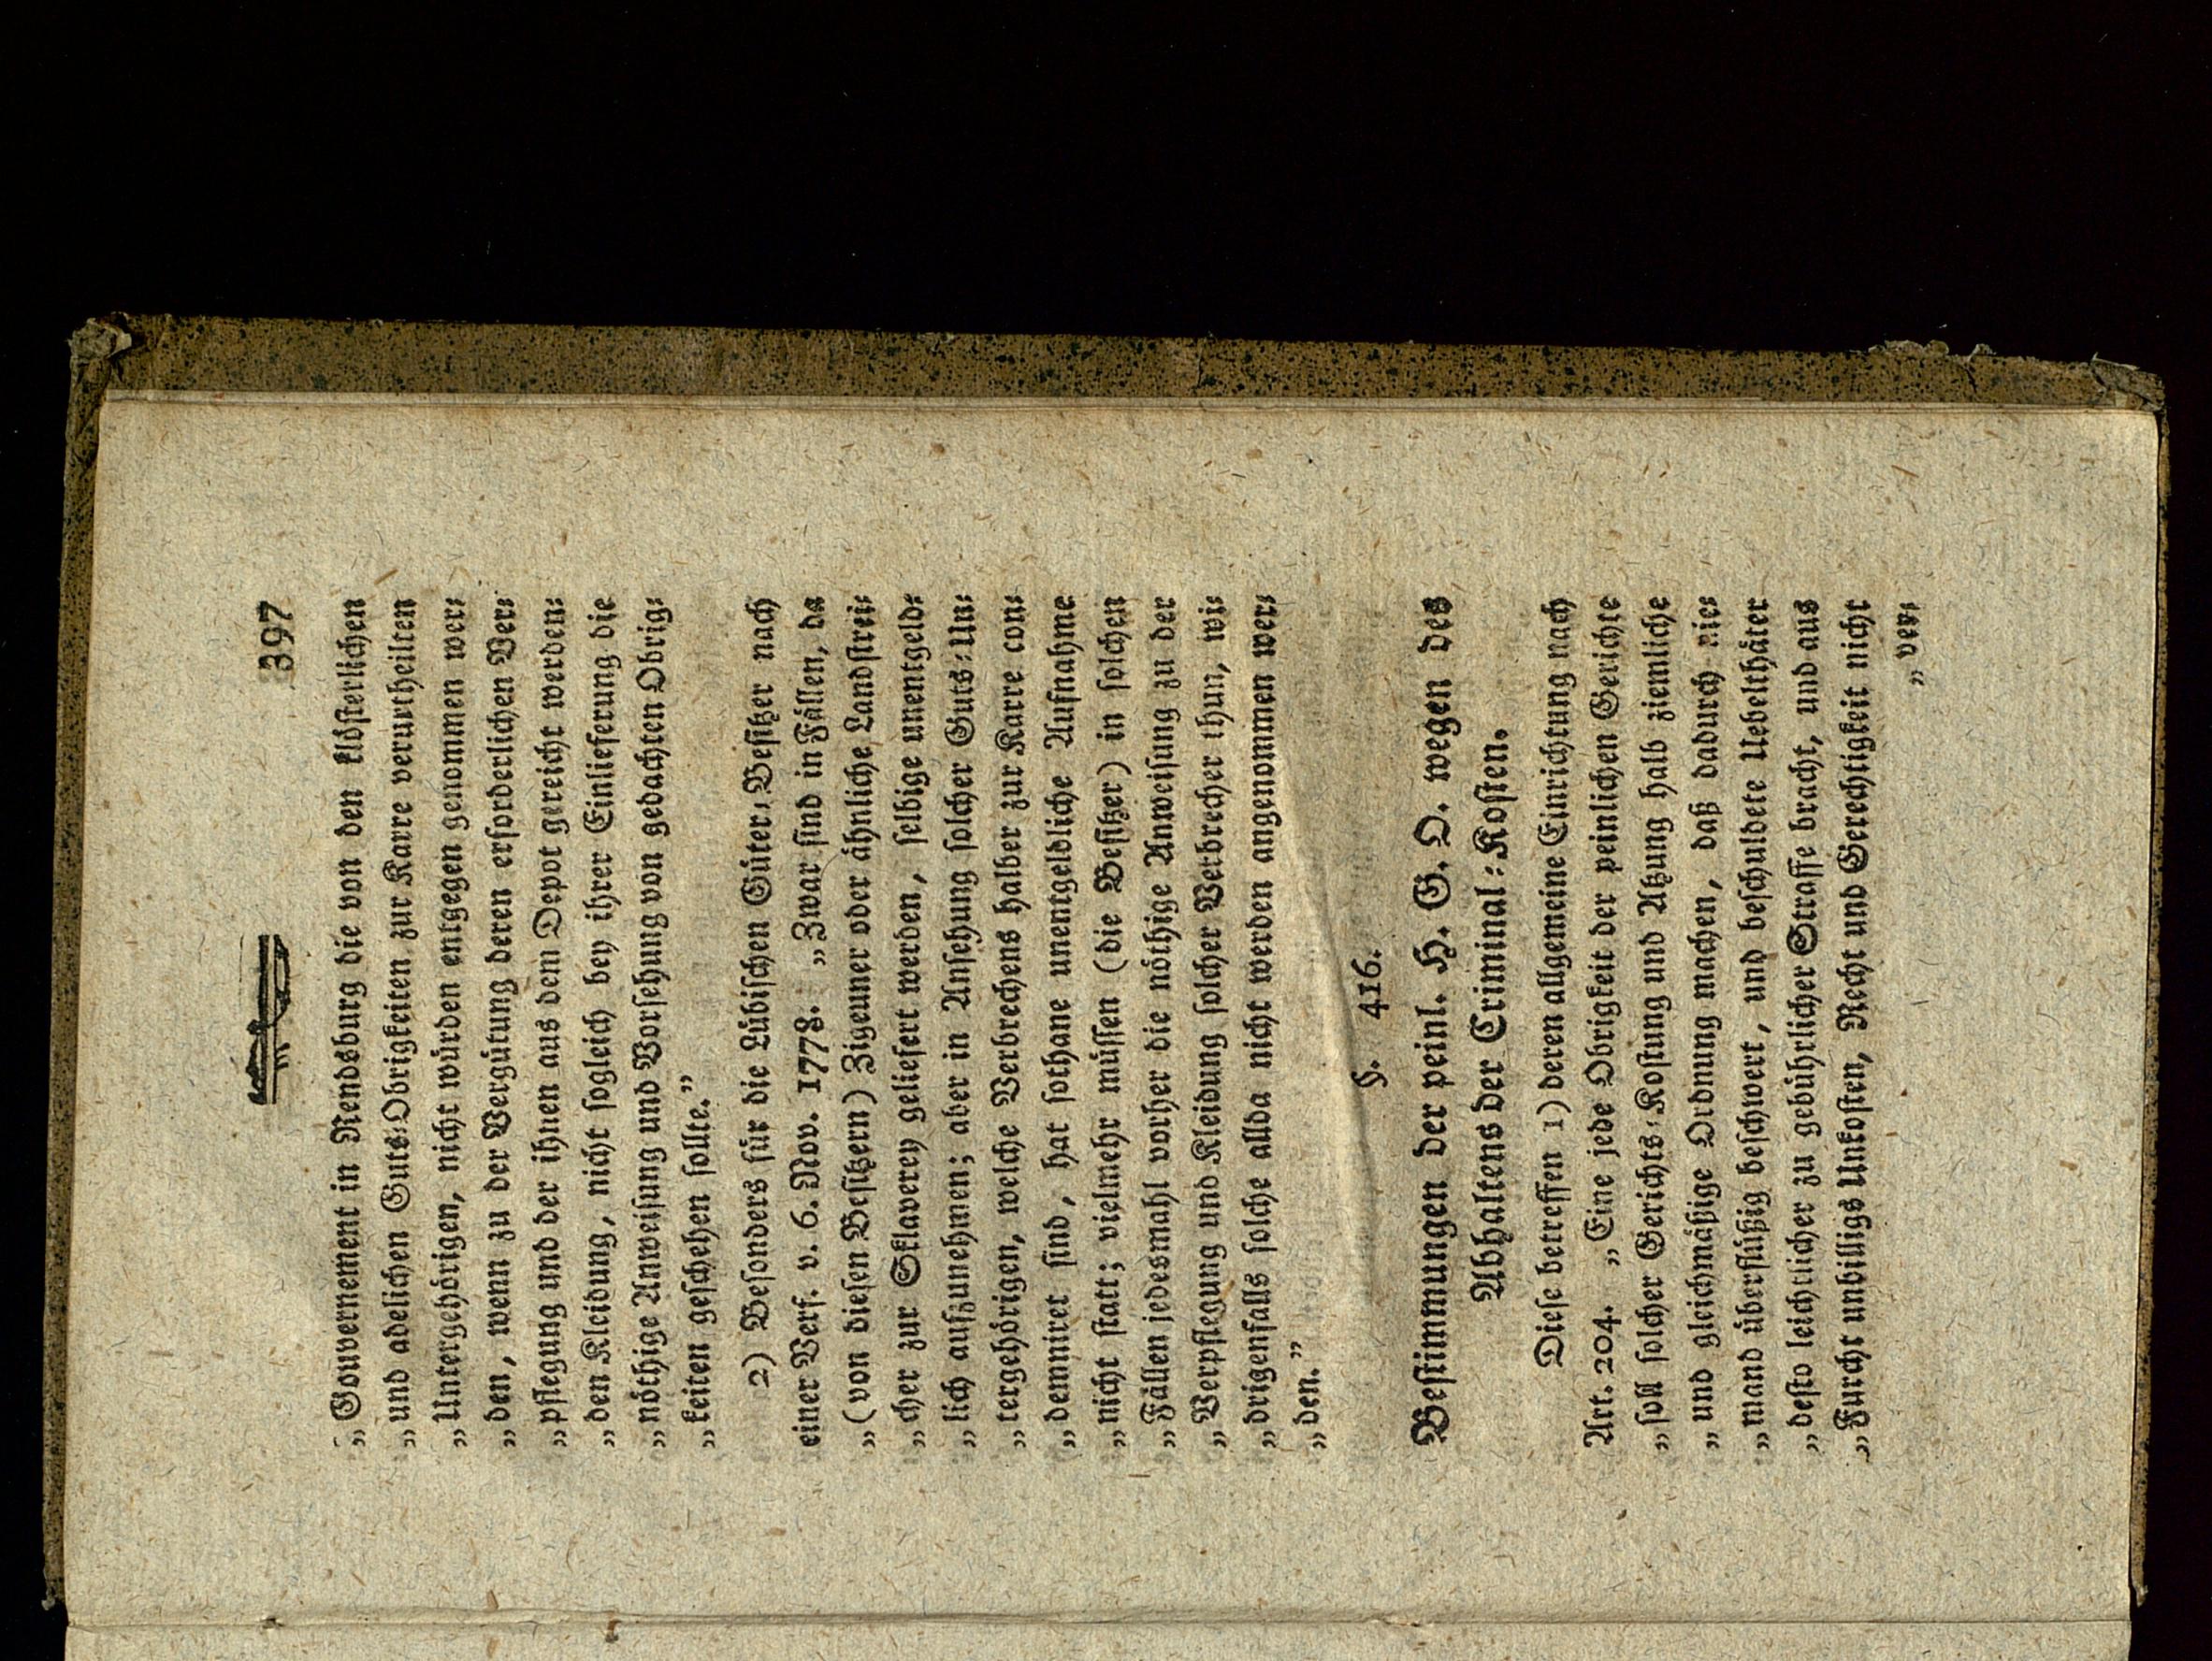 397
„Gouvernement in Rendsburg die von den klösterlichen
„und adelichen Guts⸗Obrigkeiten zur Karre verurtheilten
„Untergehörigen, nicht würden entgegen genommen wer⸗
„den, wenn zu der Vergütung deren erforderlichen Ver⸗
„pflegung und der ihnen aus dem Depot gereicht werden⸗
„den Kleidung, nicht sogleich bey ihrer Einlieferung die
„nöthige Anweisung und Vorsehung von gedachten Obrig⸗
„keiten geschehen sollte.”
2) Besonders für die Lübischen Güter⸗Besitzer nach
einer Verf. v. 6. Nov. 1778. „Zwar sind in Fällen, da
„(von diesen Besitzern) Zigeuner oder ähnliche Landstrei⸗
„cher zur Sklaverey geliefert werden, selbige unentgeld⸗
„lich aufzunehmen; aber in Ansehung solcher Guts⸗Un⸗
„tergehörigen, welche Verbrechens halber zur Karre con⸗
„demniret sind, hat sothane unentgeldliche Aufnahme
„nicht statt; vielmehr müssen (die Besitzer) in solchen
„Fällen jedesmahl vorher die nöthige Anweisung zu der
„Verpflegung und Kleidung solcher Verbrecher thun, wi⸗
„drigenfalls solche allda nicht werden angenommen wer⸗
„den.”
§. 416.
Bestimmungen der peinl. H. G. O. wegen des
Abhaltens der Criminal⸗Kosten.
Diese betreffen 1) deren allgemeine Einrichtung nach
Art. 204. „Eine jede Obrigkeit der peinlichen Gerichte
„soll solcher Gerichts⸗Kostung und Atzung halb ziemliche
„und gleichmäßige Ordnung machen, daß dadurch nie⸗
„mand überflüßig beschwert, und beschuldete Uebelthäter
„desto leichtlicher zu gebührlicher Straffe bracht, und aus
„Furcht unbilligs Unkosten, Recht und Gerechtigkeit nicht
„ver⸗